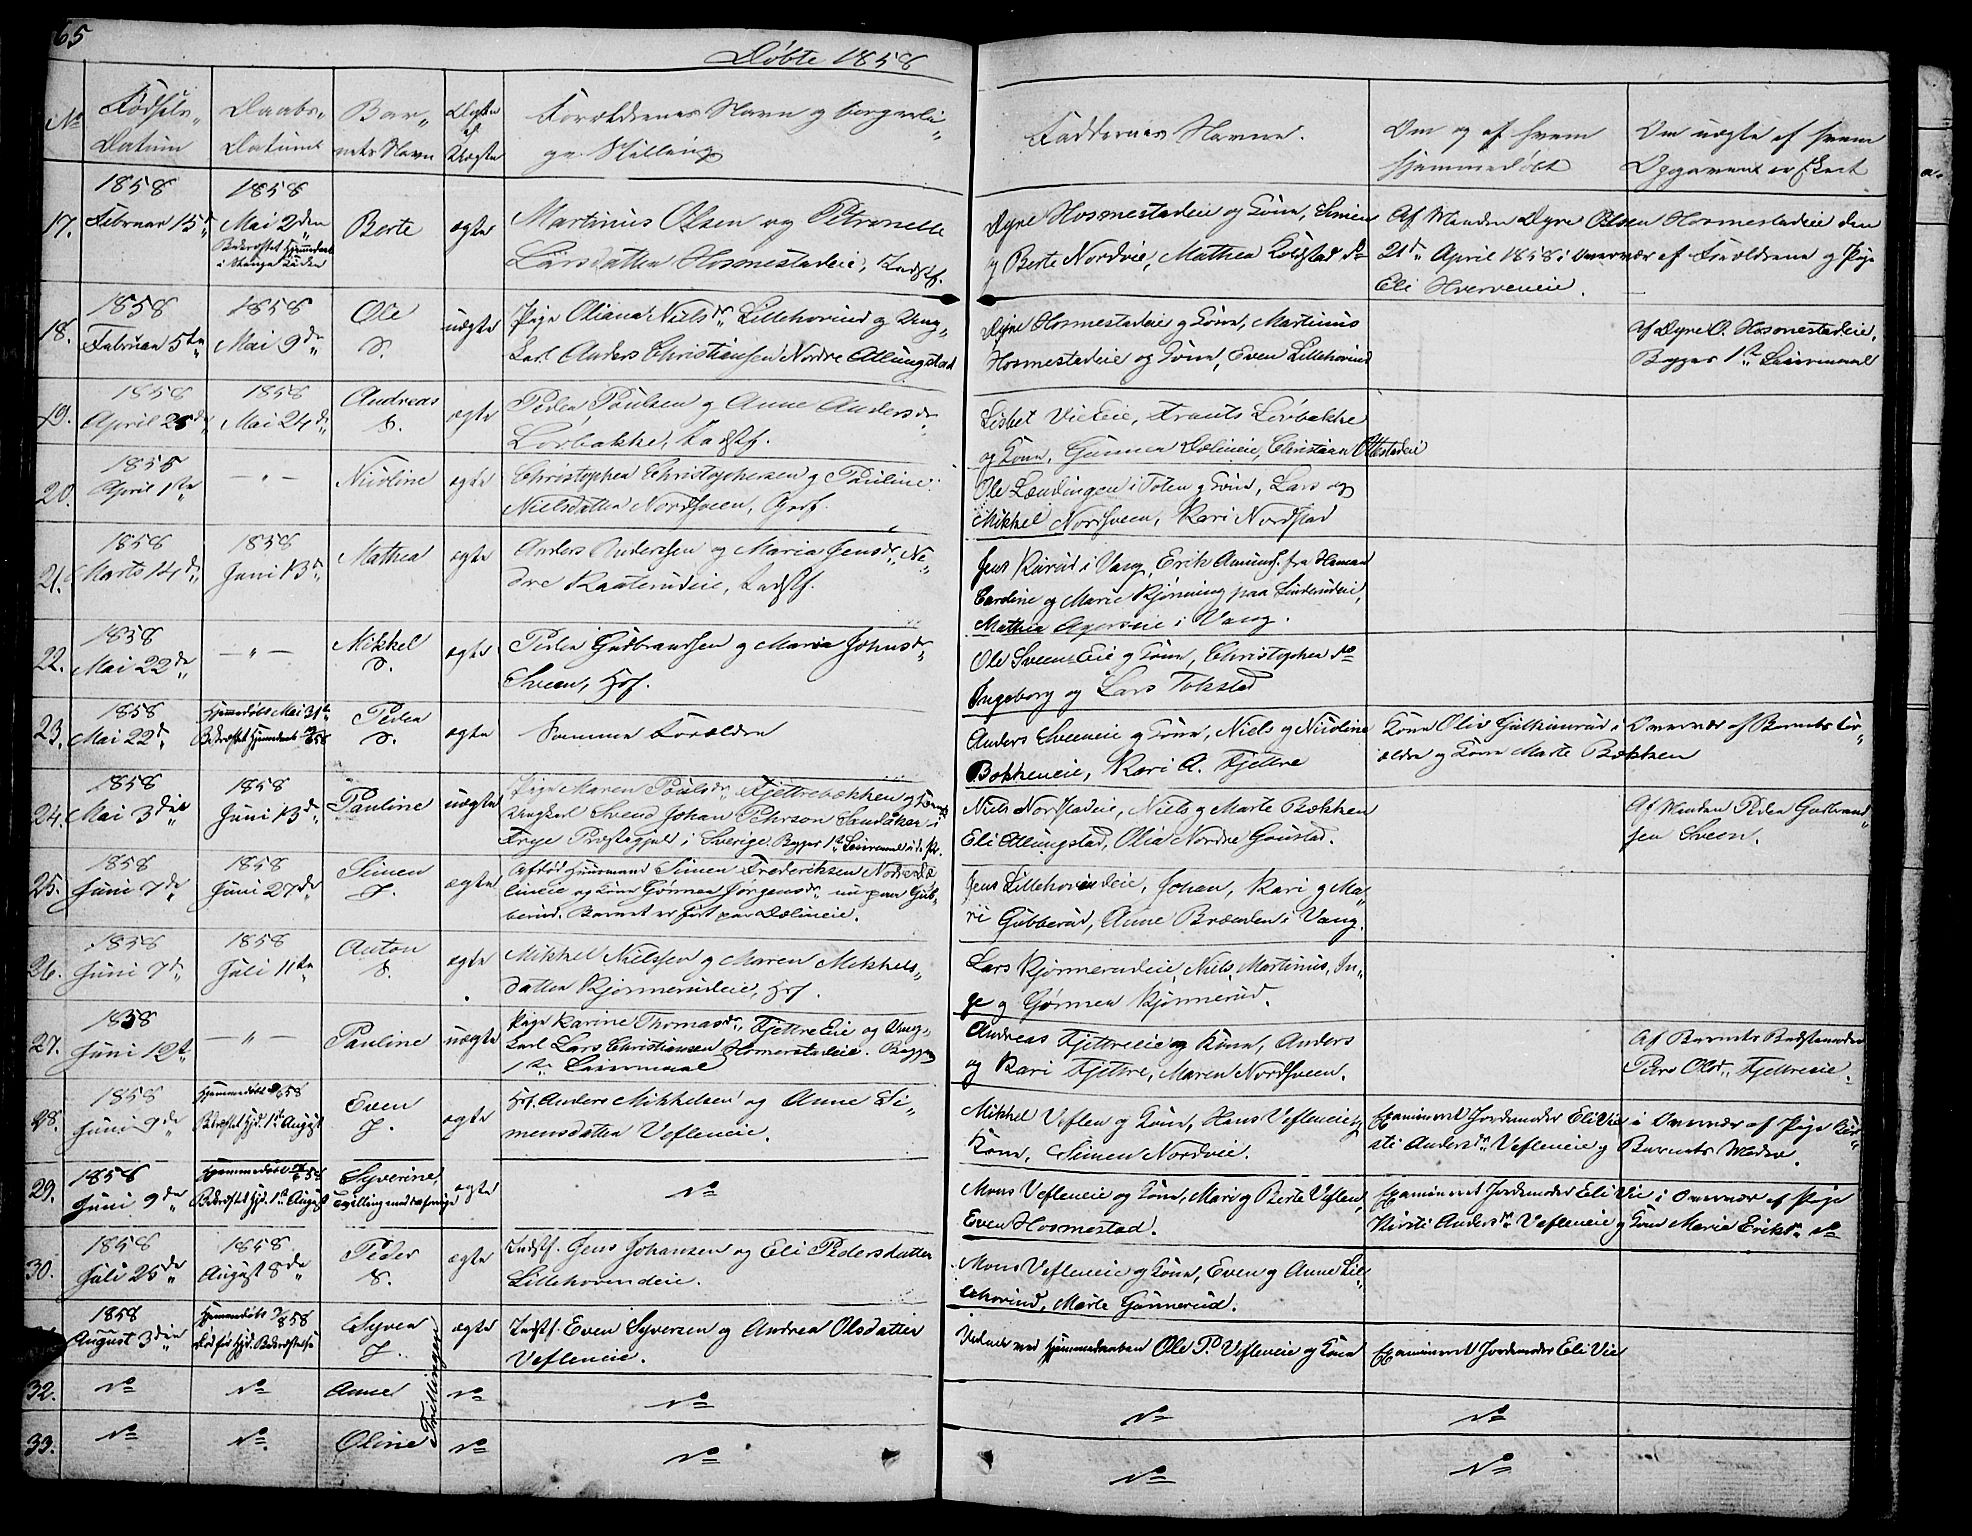 65
Døbte 1858
No
Fødsels-
Datum
Daabs-
Datum
Bar-
nets Navn
Ægte
el.
Uægte
Forældrenes Navn og borgerli-
ge Stilling
Faddernes Navne.
Om og af hvem
hjemmedøbt
Om uægte af hvem
Opgavene er skeet
17.
1858
Februar 15de
1858
Mai 2den
Bekræftet Hjemmedaab
i Stange Kirken
Berte
ægte
Martinus Olsen og Petronelle
Larsdatter Hosmestadeie, Indstf.
Dyre Hosmestadeie og Kone, Simen
og Berte Nordvie, Mathea Koldstad
Af Manden Dyre Olsen Hosmestadeie den
21de April 1858 i Overvær af Forældrene og Pige
Eli Hverveneie.
18.
1858
Februar 5te
1858
Mai 9de
Ole
S.
uægte
Pige Oliana Nielsdr. Lillehovind og Ung-
karl Anders Christiansen Nordre Atlungstad
Dyre Hosmestadeie og Kone, Martinus
Hosmestadeie og Kone, Even Lillehovind
Af Dyre O. Hosmestadeie.
Begges 1ste Leiermaal
19.
1858
April 25de
1858
Mai 24de
Andreas
S.
ægte
Peder Poulsen og Anne Andersdr.
Lørbakke, Indstf.
Lisbet Vieeie, Frants Lørbakke
og Kone, Gunner Dælineie, Christian Ottestadeie
20.
1855
April 1ste
— " —
Nicoline
ægte
Christopher Christophersen og Pauline
Nielsdatter Nordsveen, Grdf.
Ole Lændingen i Toten og Kone, Lars og
Mikkel Norsveen, Kari Nordstad
21.
1858
Marts 14de
1858
Juni 13de
Mathea
ægte
Anders Andersen og Maria Jensdr. Ne-
dre Kauterudeie, Indstf.
Jens Kurud i Vang, Erik Amunds. fra Hamar
Caroline og Marie Kjønning paa Linderudeie,
Mathea Agerseie i Vang.
22.
1858
Mai 22de
— " —
Mikkel
S.
ægte
Peder Gudbrandsen og Maria Johnsdr.
Sveen, Hsf.
Ole Sveenseie og Kone, Christopher do
Ingeborg og Lars Tokstad
23.
1858
Mai 22de
Hjemmedøbt Mai 31te
Bekræftet Hjemmedaab
Peder
S.
ægte
Samme Forældre
Anders Sveeneie og Kone, Niels og Nicoline
Bækkeneie, Kari A. Fjettre
Kone Oliv Gulkinrud i Overvær af Barnets For-
ældre og Kone Marte Bækken
24.
1858
Mai 3die
1858
Juni 13de
Pauline
uægte
Pige Maren Poulsdr. Fjettrebækken og
Ungkarl Svend Johan Pehrson Sandaker i
Præstegjeld i Sverige. Begges 1ste Leiermaal
Niels Norstadeie, Niels og Marte Bækken
Eli Atlungstad, Olia Nordre Goustad.
Af Manden Peder Gudbrand-
sen Sveen.
25.
1858
Juni 7de
1858
Juni 27de
Simen
S.
ægte
Afdød Husmand Simen Frederiksen Nordre Dæ-
lineie og Kone Gørmen Jørgensdr. nu paa Gub-
berud. Barnet er født paa Dælineie.
Jens Lillehovindeie, Johan, Kari og Ma-
ri Gubberud, Anne Brænden i Vang.
26.
1858
Juni 7de
1858
Juli 11te
Anton
S.
ægte
Mikkel Nielsen og Maren Mikkels-
datter Kjørnerudeie, Hsf.
Lars Kjørnerudeie, Niels, Martinus, In-
ge og Gørmen Kjørnerud.
27.
1858
Juni 12te
— " —
Pauline
uægte
Pige Karine Thomasdr. FjettreEie og Ung-
karl Lars Christiansen Homerstadeie. Begges
1ste Leiermaal
Andreas Fjettreeie og Kone, Anders
og Kari Fjettre, Maren Nordsveen.
Af Barnets Bedstemoder
Olsdr. Fjettreeie.
28.
1858
Juni 9de
Hjemmedøbt
Bekræftet Hjd. 1ste August
Even
S.
ægte
Hsf. Anders Mikkelsen og Anne Si-
mensdatter Vefleneie.
Mikkel Veflen og Kone, Hans Vefleneie og
Kone, Simen Nordvie.
Examineret Jordemoder Eli Vie i Overvær af Pige Kir-
sti Andersdr. Vefleneie og Barnets Moder.
29.
1858
Juni 9de
Hjemmedøbt
Bekræftet Hjd. 1ste August
Syverine,
Tvilling med Forrige
ægte
do
Mons Vefleneie og Kone, Mari og Berte Veflen,
Even Hosmestad.
Examineret Jordemoder Eli Vie i Overvær af Pige
Kirsti Andersdr. Vefleneie og Kone Maria Eriksdr. do
30.
1858
Juli 25de
1858
August 8de
Peder
S.
ægte
Indstf. Jens Johansen og Eli Pedersdatter
Lillehovendeie.
Mons Vefleneie og Kone, Even og Anne Lil-
lehovind, Marte Gunnerud.
1858
August 3die
Hjemmedøbt 3/8 58
Død før Hjd. Bekræftelse
Syver
S.
Trillinger
ægte
Indstf. Even Syversen og Andrea Olsdatter
Vefleneie.
Vidner ved Hjemmedaaben Ole P. Vefleneie og Kone
Examineret Jordemoder Eli Vie
32.
do
do
Anne
do
do
do
do
33.
do
do
Oline
do
do
do
do